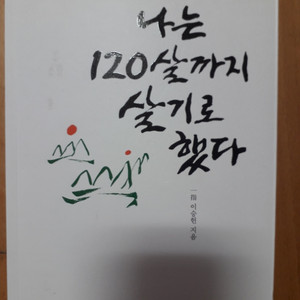 나는
120살까지
살기로
했다
一指 이승헌 지음